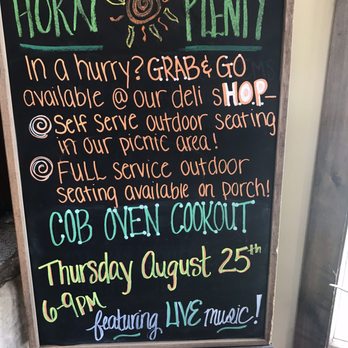 HORN PLENTY
In a hurry? GRAB & GO
available @ our deli SHOP-
Self serve outdoor seating
in our picnic area!
FULL service outdoor
seating available on porch!
COB OVEN COOKOUT
Thursday August 25th
6-9PM
featuring LIVE music!